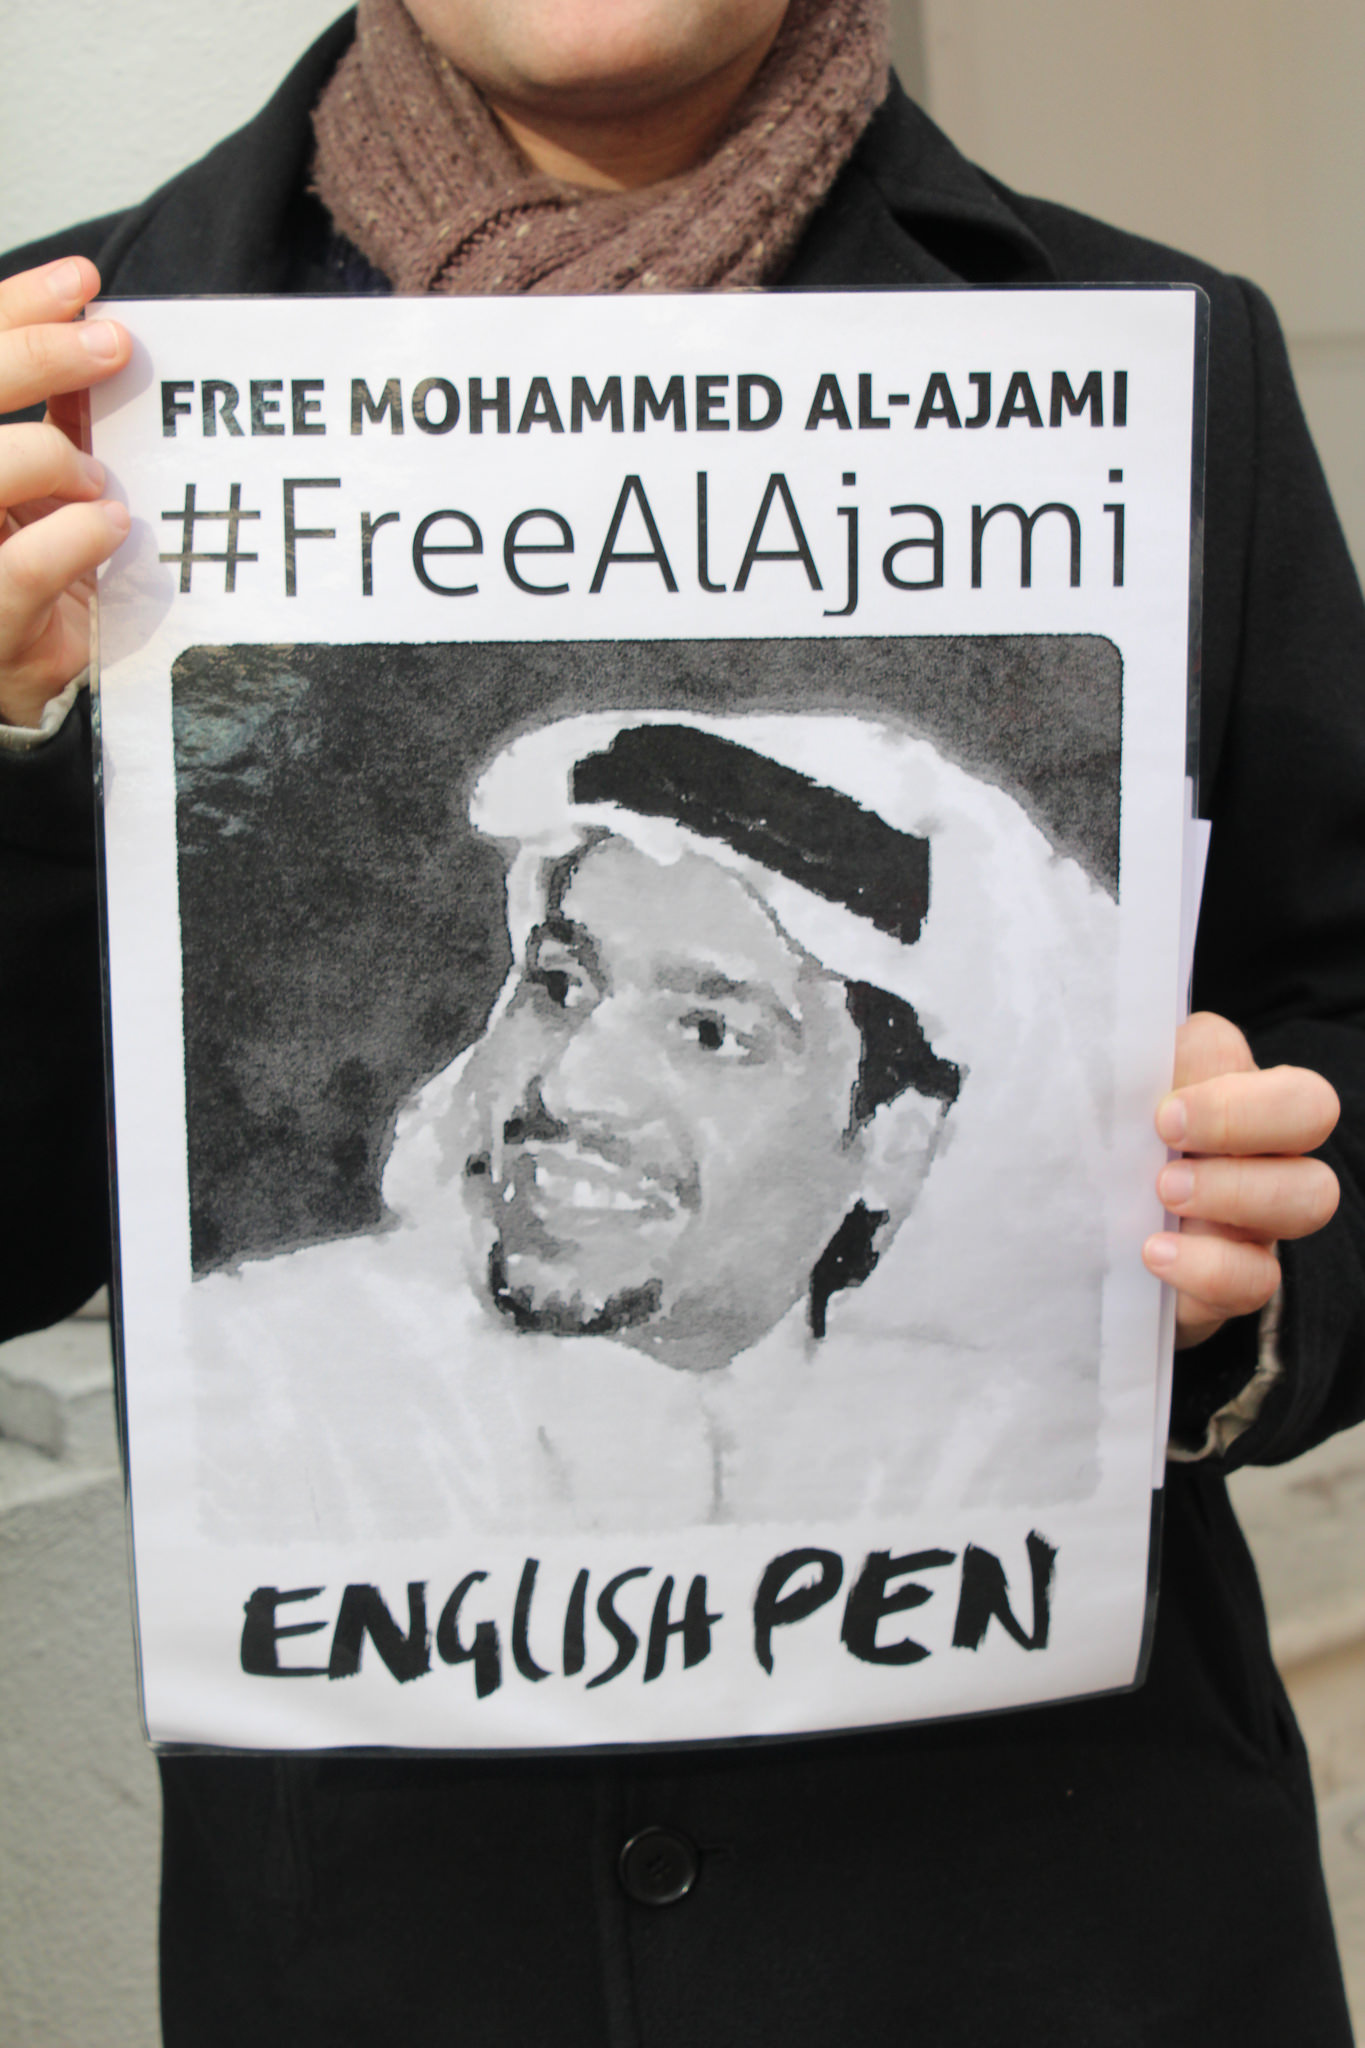 FREE MOHAMMED AL-AJAMI
#FreeAlAjami
ENGLISH PEN